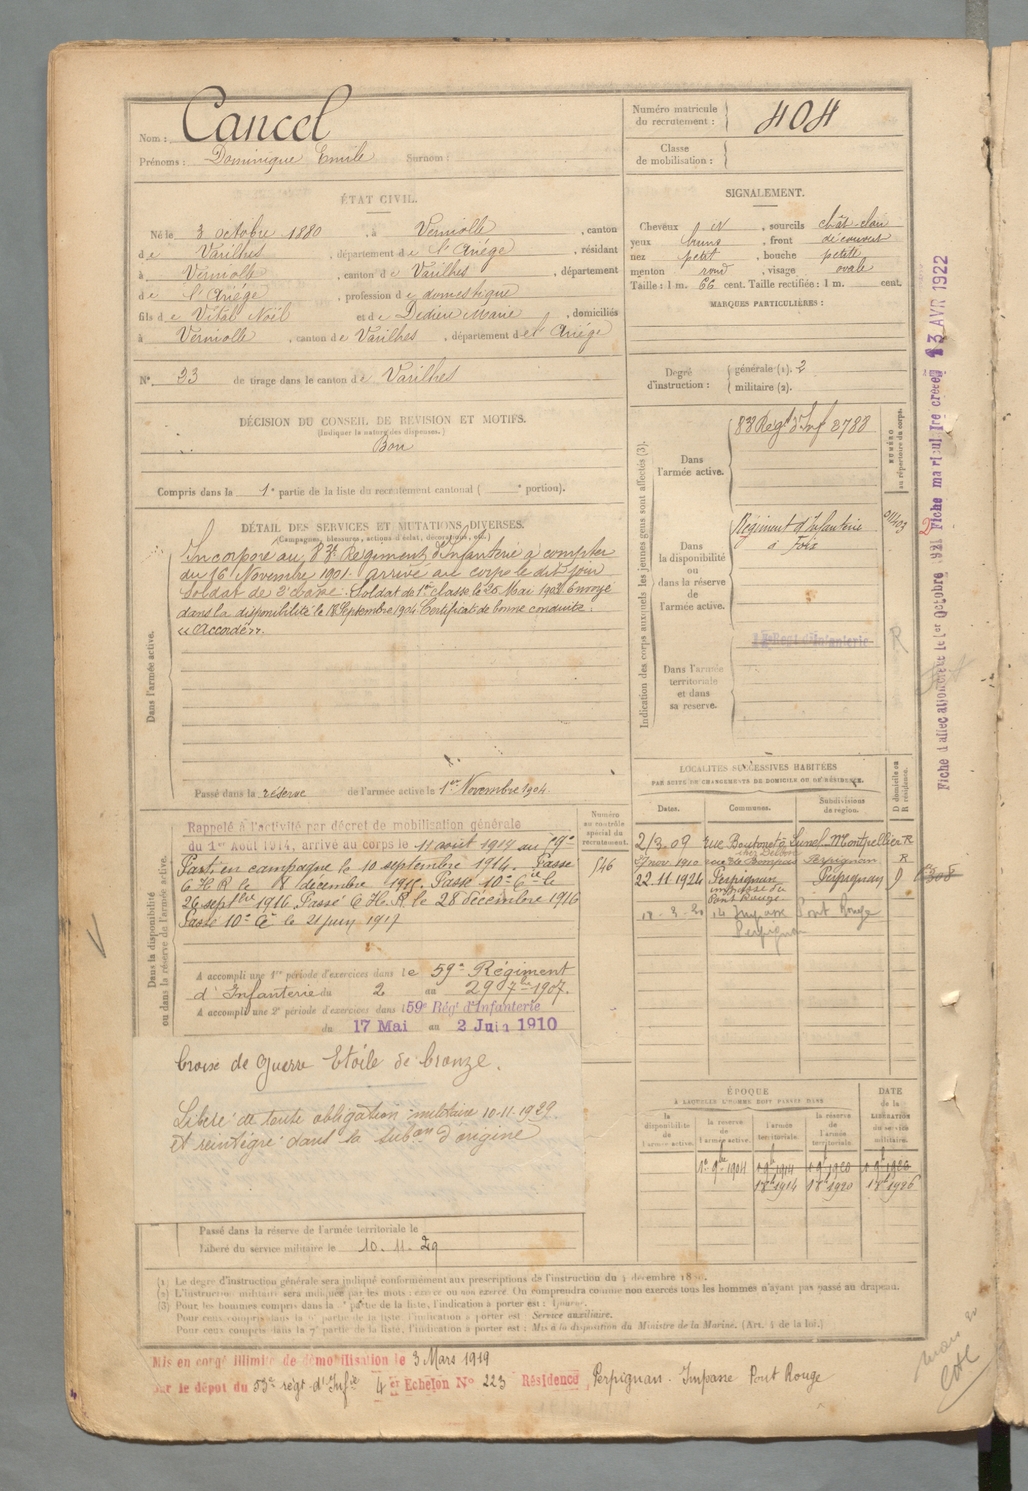 Nom : Cancel
Prénoms : Dominique Emile Surnom :
Numéro matricule du recrutement : 404
Classe de mobilisation :
ÉTAT CIVIL.
Né le 3 octobre 1880, à Verniolle, canton
de Varilhes, département de l'Ariége, résidant
à Verniolle, canton de Varilhes, département
de l'Ariége, profession de domestique
fils de Vital Noël et de Dedieu Marie, domiciliés
à Verniolle, canton de Varilhes, département de l'Ariége
N° 23 de tirage dans le canton de Varilhes
SIGNALEMENT.
Cheveux N, sourcils chât-clair
yeux bruns, front découvert
nez petit, bouche petite
menton rond, visage ovale
Taille : 1 m. 66 cent. Taille rectifiée : 1 m. cent.
MARQUES PARTICULIÈRES :
Degré d'instruction : générale (1). 2
militaire (2).
DÉCISION DU CONSEIL DE REVISION ET MOTIFS.
(Indiquer la nature des dispenses.)
Bon
Compris dans la 1e partie de la liste du recrutement cantonal ( e portion).
DÉTAIL DES SERVICES ET MUTATIONS DIVERSES.
(Campagnes, blessures, actions d'éclat, décorations, etc.)
Dans l'armée active.
Incorporé au 83e Régiment d'Infanterie à compter
du 16 Novembre 1901. arrivé au corps le dit jour
Soldat de 2e classe. Soldat de 1re classe le 25 Mai 1902. Envoyé
dans la disponibilité le 18 Septembre 1904. Certificat de bonne conduite.
« Accordé ».
Passé dans la réserve de l'armée active le 1er Novembre 1904.
Indication des corps auxquels les jeunes gens sont affectés (3).
NUMÉRO au répertoire du corps.
Dans l'armée active.
83 Régt d'Inf 2783
Dans la disponibilité ou dans la réserve de l'armée active.
Régiment d'Infanterie
à Foix
Dans l'armée territoriale et dans sa réserve.
Régt d'Infanterie
R
Fiche d'affectation créée le 1er Octobre 1921
Fiche matricul're créée 13 AVR 1922
Dans la disponibilité ou dans la réserve de l'armée active.
Rappelé à l'activité par décret de mobilisation générale
du 1er Août 1914, arrivé au corps le 11 août 1914 au 59e
Parti en campagne le 10 septembre 1914. Passé
C H R le 8 décembre 1915. Passé 10e Cie le
26 septbre 1916. Passé C. H. R. le 28 décembre 1916
Passé 10e Cie le 21 juin 1917
Numéro au contrôle spécial du recrutement.
546
A accompli une 1re période d'exercices dans le 59e Régiment
d'Infanterie du 2 au 29 7bre 1907.
A accompli une 2e période d'exercices dans l 59e Rég' d'Infanterie
du 17 Mai au 2 Juin 1910
Croix de Guerre Etoile de bronze.
Libéré de toute obligation militaire 10-11-1929
et réintégré dans sa subon d'origine
Passé dans la réserve de l'armée territoriale le
Libéré du service militaire le 10. 11. 29
LOCALITÉS SUCCESSIVES HABITÉES
PAR SUITE DE CHANGEMENTS DE DOMICILE OU DE RÉSIDENCE.
Dates. Communes. Subdivisions de région. D domicile ou R résidence.
2/3.09 rue Boutonet à Lunel Montpellier R
nov 1910 Perpignan R
22.11.1924 Perpignan Perpignan D
impasse du Pont Rouge
14 Impasse Pont Rouge
Perpignan
ÉPOQUE
A LAQUELLE L'HOMME DOIT PASSER DANS
DATE de la LIBÉRATION du service militaire.
la disponibilité de l'armée active. la réserve de l'armée active. l'armée territoriale. la réserve de l'armée territoriale.
1er 9bre 1904 1 9b 1914 1 9b 1920 1 9b 1926
1 8b 1914 1 8b 1920 1 8b 1926
(1) Le degré d'instruction générale sera indiqué conformément aux prescriptions de l'instruction du 4 décembre 18
(2) L'instruction militaire sera indiquée par les mots : exercé ou non exercé. On comprendra comme non exercés tous les hommes n'ayant pas passé au drapeau.
(3) Pour les hommes compris dans la partie de la liste, l'indication à porter est : Ajourné.
Pour ceux compris dans la 5e partie de la liste, l'indication à porter est Service auxiliaire.
Pour ceux compris dans la 7e partie de la liste, l'indication à porter est : Mis à la disposition du Ministre de la Marine. (Art. 4 de la loi.)
Mis en congé illimité de démobilisation le 3 Mars 1919
par le dépôt du 53e régt d'Infie 4er Echelon N° 223 Résidence Perpignan. Impasse Pont Rouge